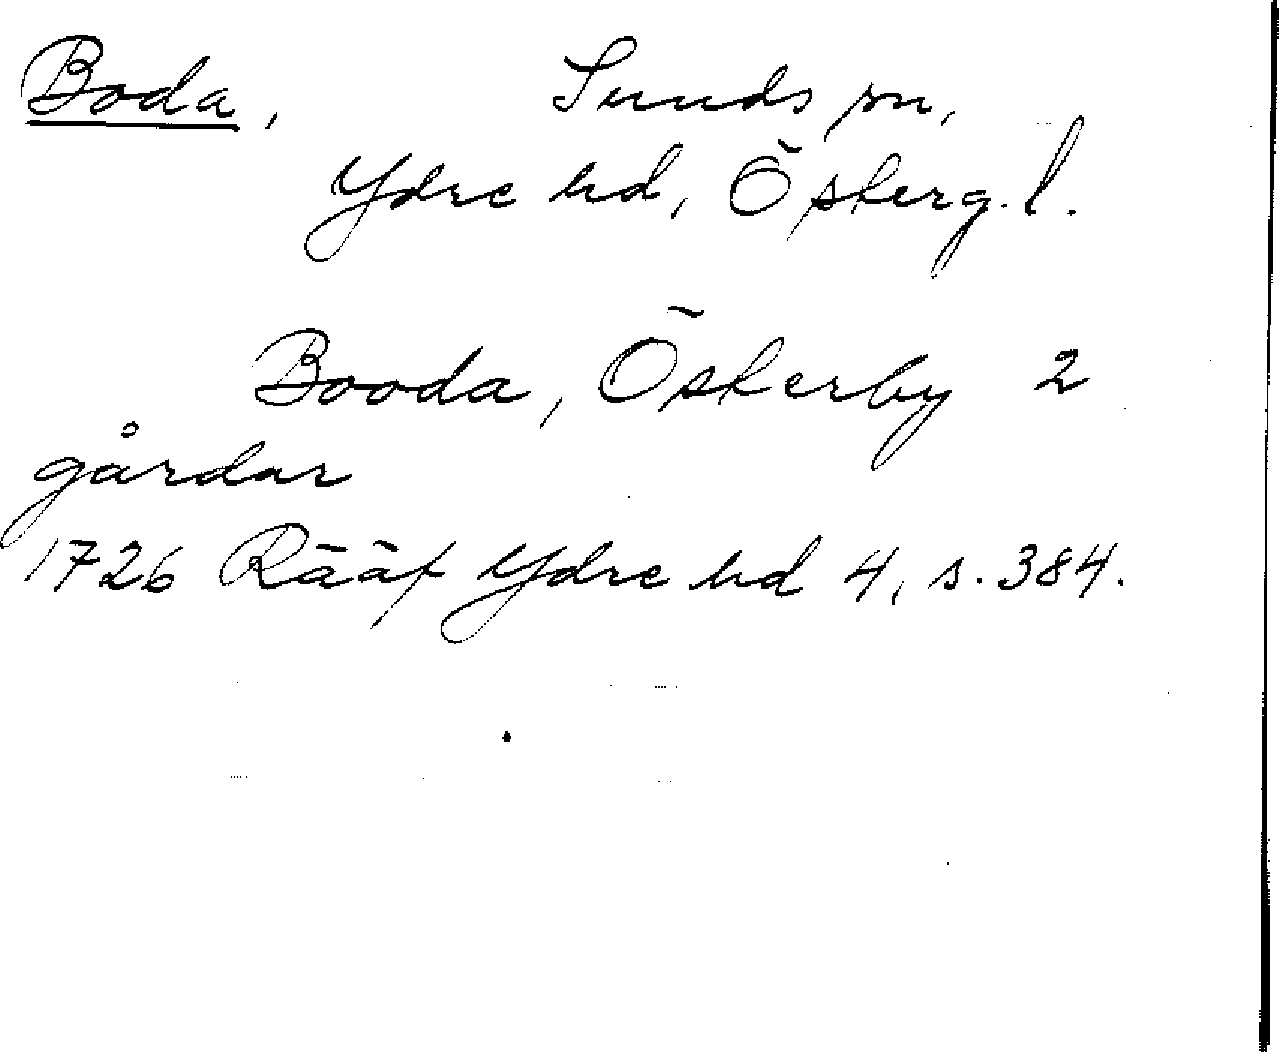 Boda, Sunds sn,
Ydre hd, Österg. l.
Booda, Österby 2
gårdar
1726 Rääf Ydre hd 4, s. 384.